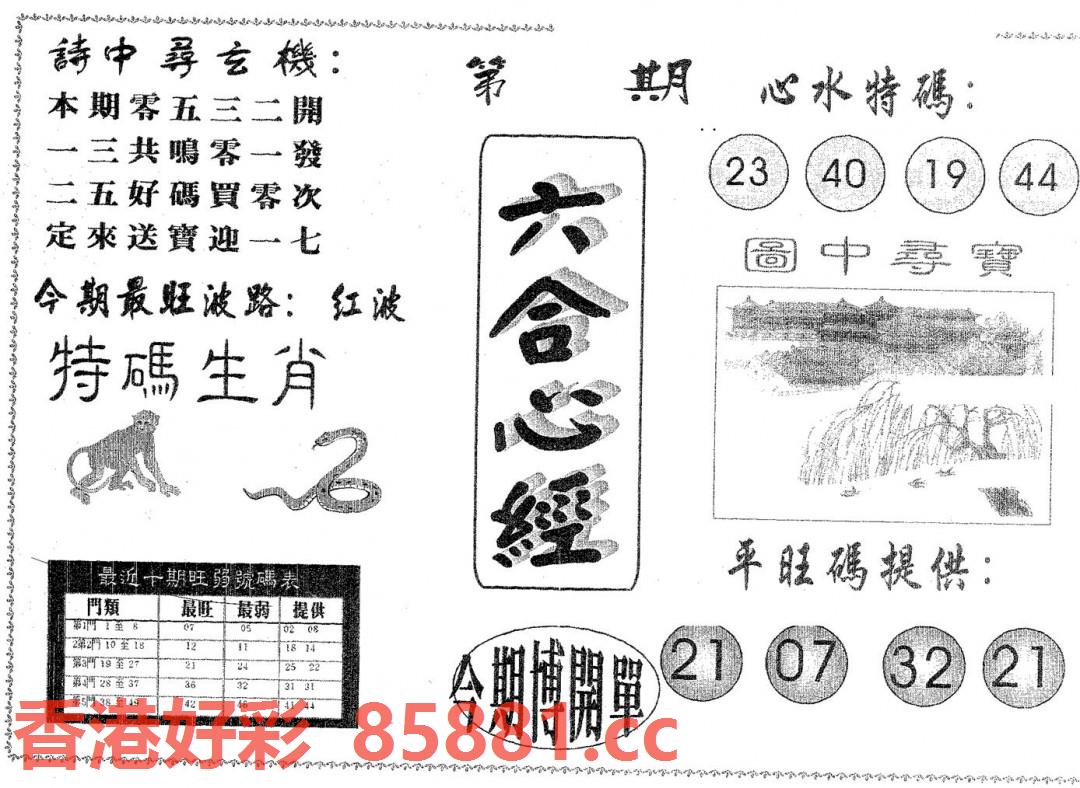 詩中尋玄機：
本期零五三二開
一三共鳴零一發
二五好碼買零次
定來送寶迎一七
今期最旺波路：紅波
特碼生肖
最近十期旺弱號碼表
門類 最旺 最弱 提供
第1門 1 至 8 07 05 02 08
2第2門 10 至 18 12 11 18 14
第3門 19 至 27 21 24 25 22
第4門 28 至 37 36 32 31 31
第5門 38 至 49 42 46 41 44
第 期
六合心經
今期博開單
心水特碼：
23 40 19 44
圖中尋寶
平旺碼提供：
21 07 32 21
香港好彩 85881.cc